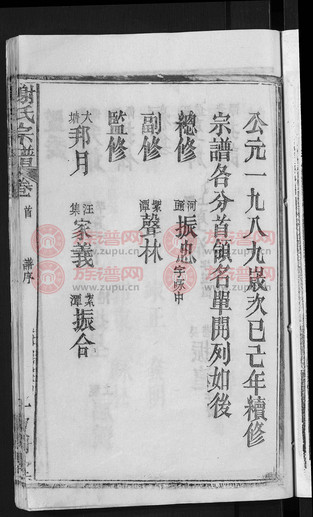 公元一九八九歲次己亡年續修
宗譜各分首領名單開列如後
總修 河頭 振忠 字啄中
副修 潭 聲林
監修
大塘 邦月 汪集 家義 潭 振合
謝氏宗譜 卷首 譜序
族谱网
www.zupu.cn